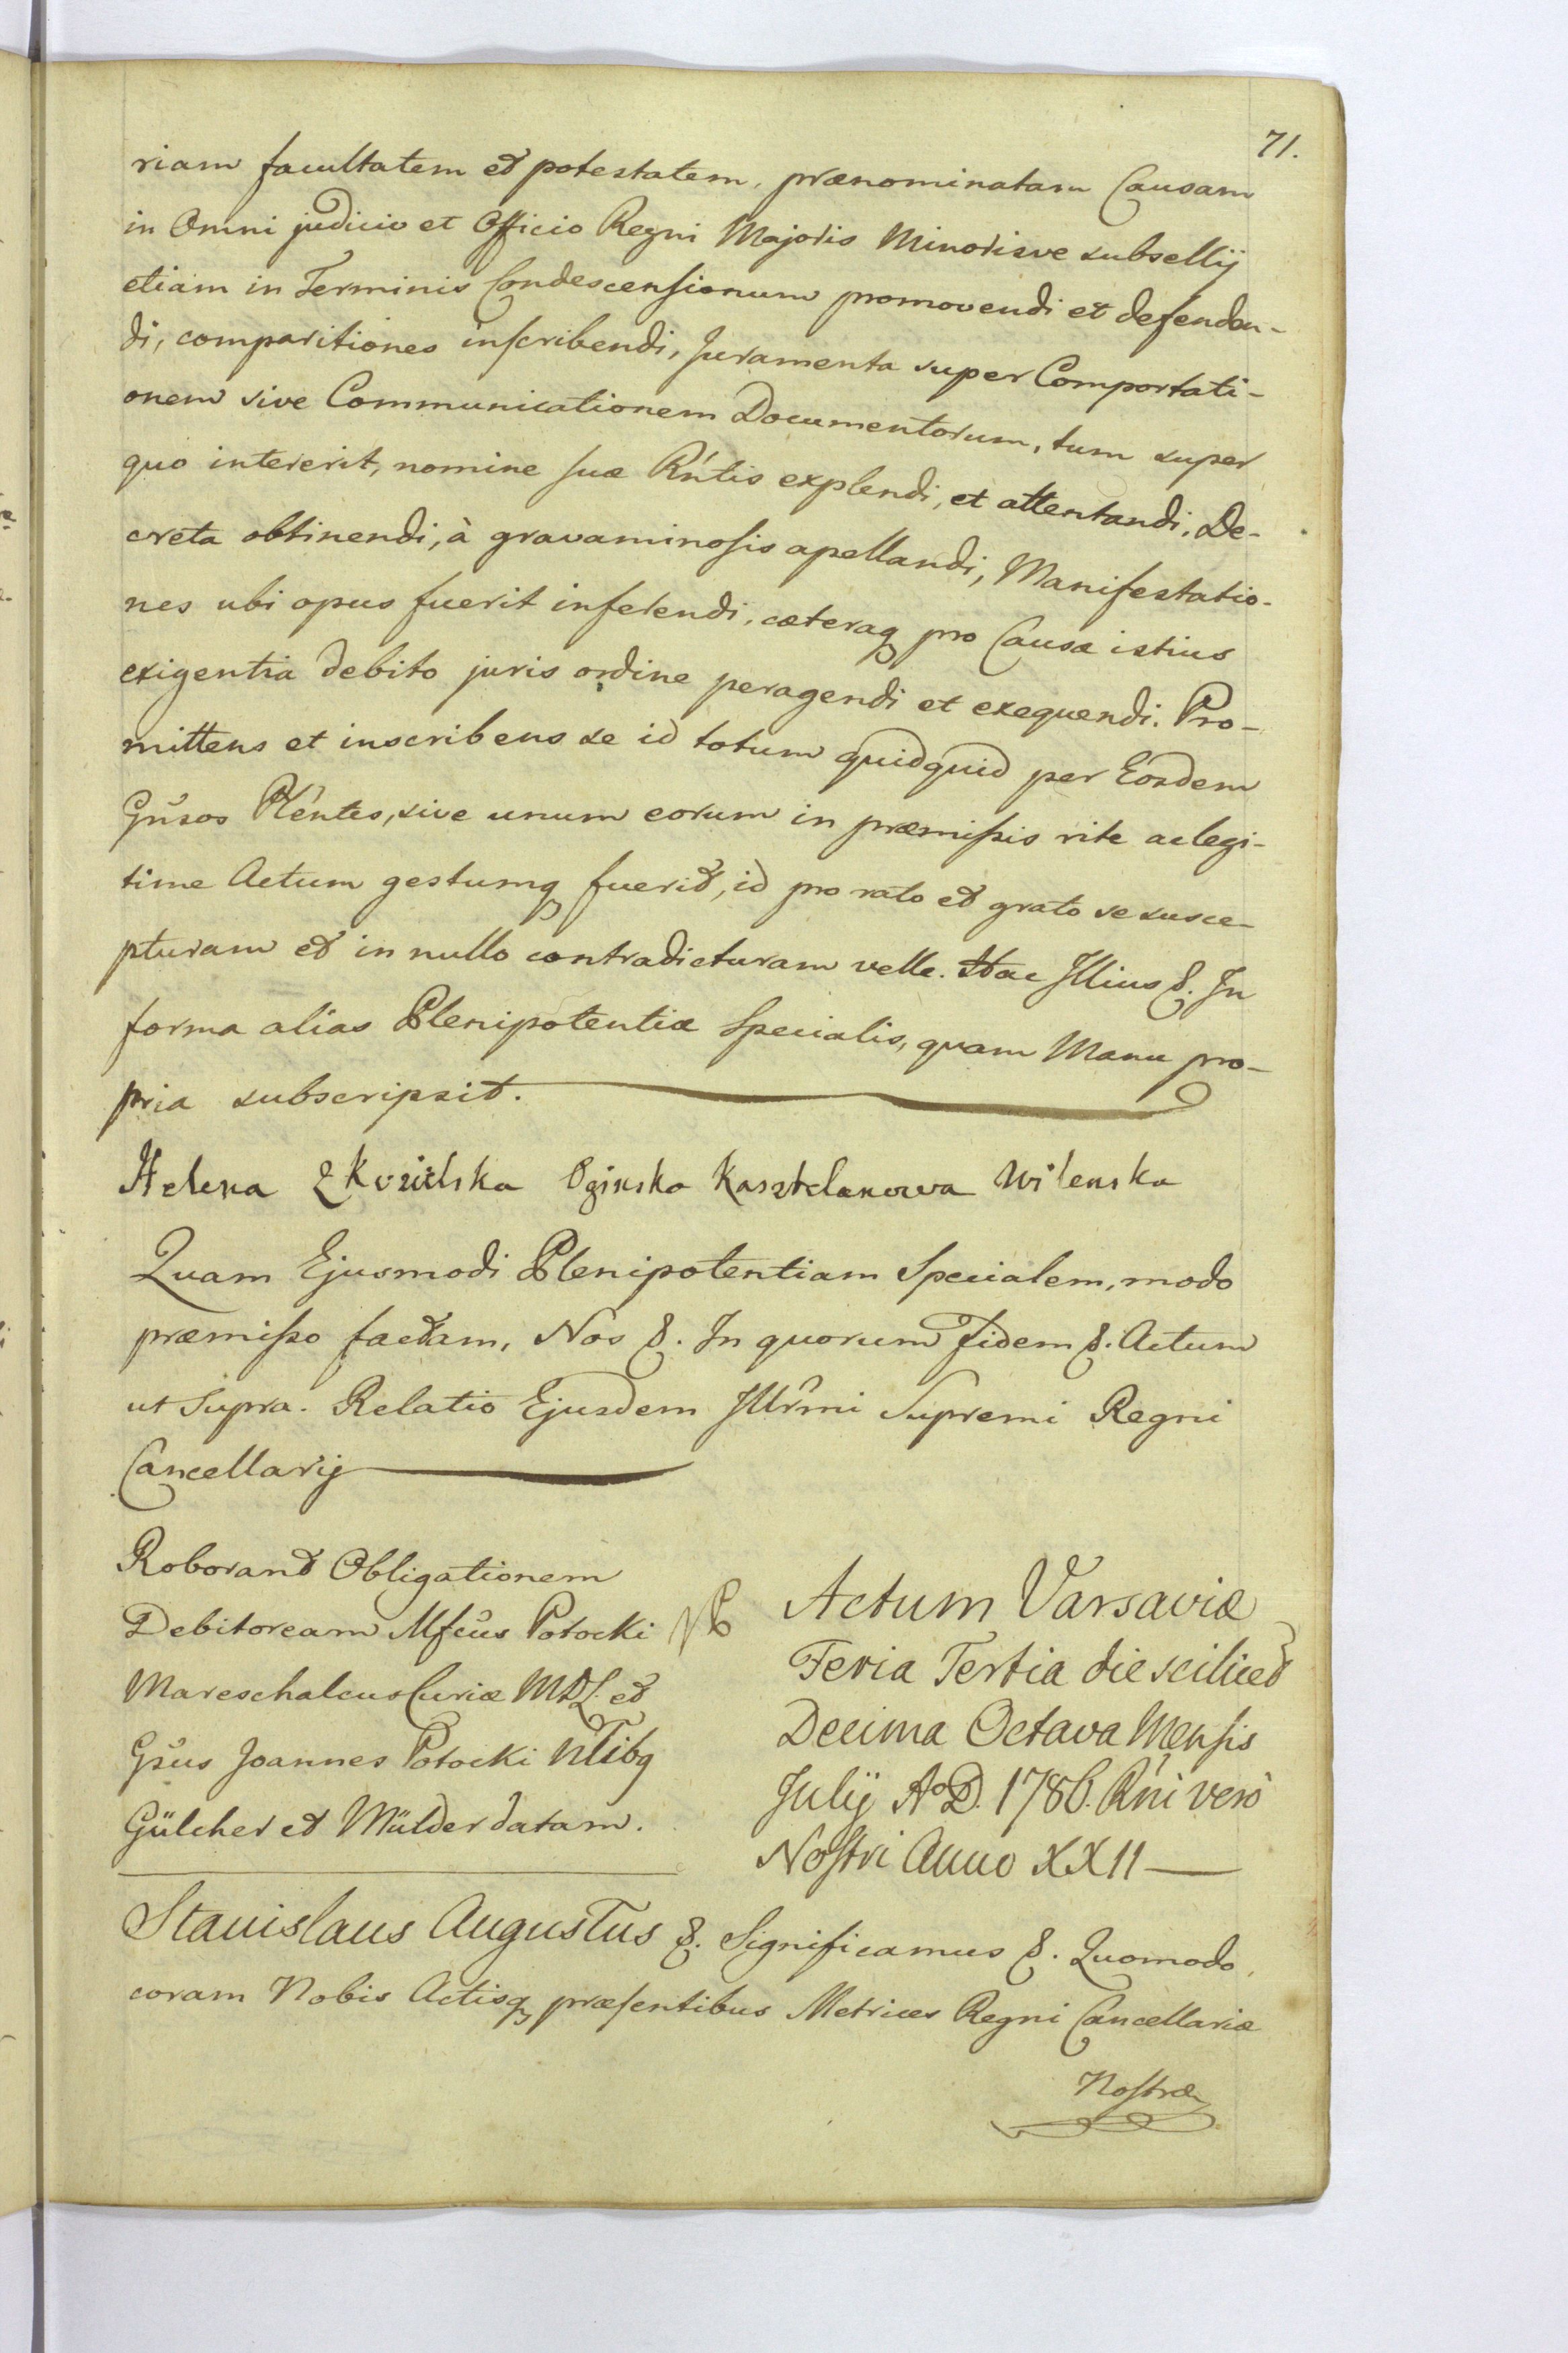 71.
riam facultatem et potestatem, prænominatam Causam
in Omni judicio et Officio Regni Majoris Minorisve subsellij
etiam in Terminis Condescensionum promovendi et defenden-
di, comparitiones inscribendi, Juramenta super Comportati-
onem sive Communicationem Documentorum, tum super
quo intererit, nomine suæ Rńtis explendi, et attentandi. De-
creta obtinendi, à gravaminosis apellandi, Manifestatio-
nes ubi opus fuerit inferendi, cæteraq pro Causæ istius
exigentia debito juris ordine peragendi et exequendi. Pro-
mittens et inscribens se id totum quidquid per Eosdem
Gńsos Pleńtes, sive unum eorum in præmissis rite ac legi-
time Actum gestumq fuerit, id pro rato et grato se susce-
pturam et in nullo contradicturam velle. Hac Illius &. In
forma alias Plenipotentiæ Specialis, quam Manu pro-
pria subscripsit.
Helena z Kozielska Oginska Kasztelanowa Wilenska
Quam Ejusmodi Plenipotentiam Specialem, modo
præmisso factam, Nos &. In quorum Fidem &. Actum
ut Supra. Relatio Ejusdem Illrmi Supremi Regni
Cancellarij
Roborant Obligationem
Debitoream Mfcus Potocki
Mareschalcus Curiæ MDL. et
Gsus Joannes Potocki Ntibq
Gülcher et Mülder datam.
Actum Varsaviæ
Feria Tertia die scilicet
Decima Octava Mensis
Julij A° D. 1786. Rńi verò
Nostri Anno XXII
Stanislaus Augustus &. Significamus &. Quomodo
coram Nobis Actisq præsentibus Metrices Regni Cancellariæ
Nostræ